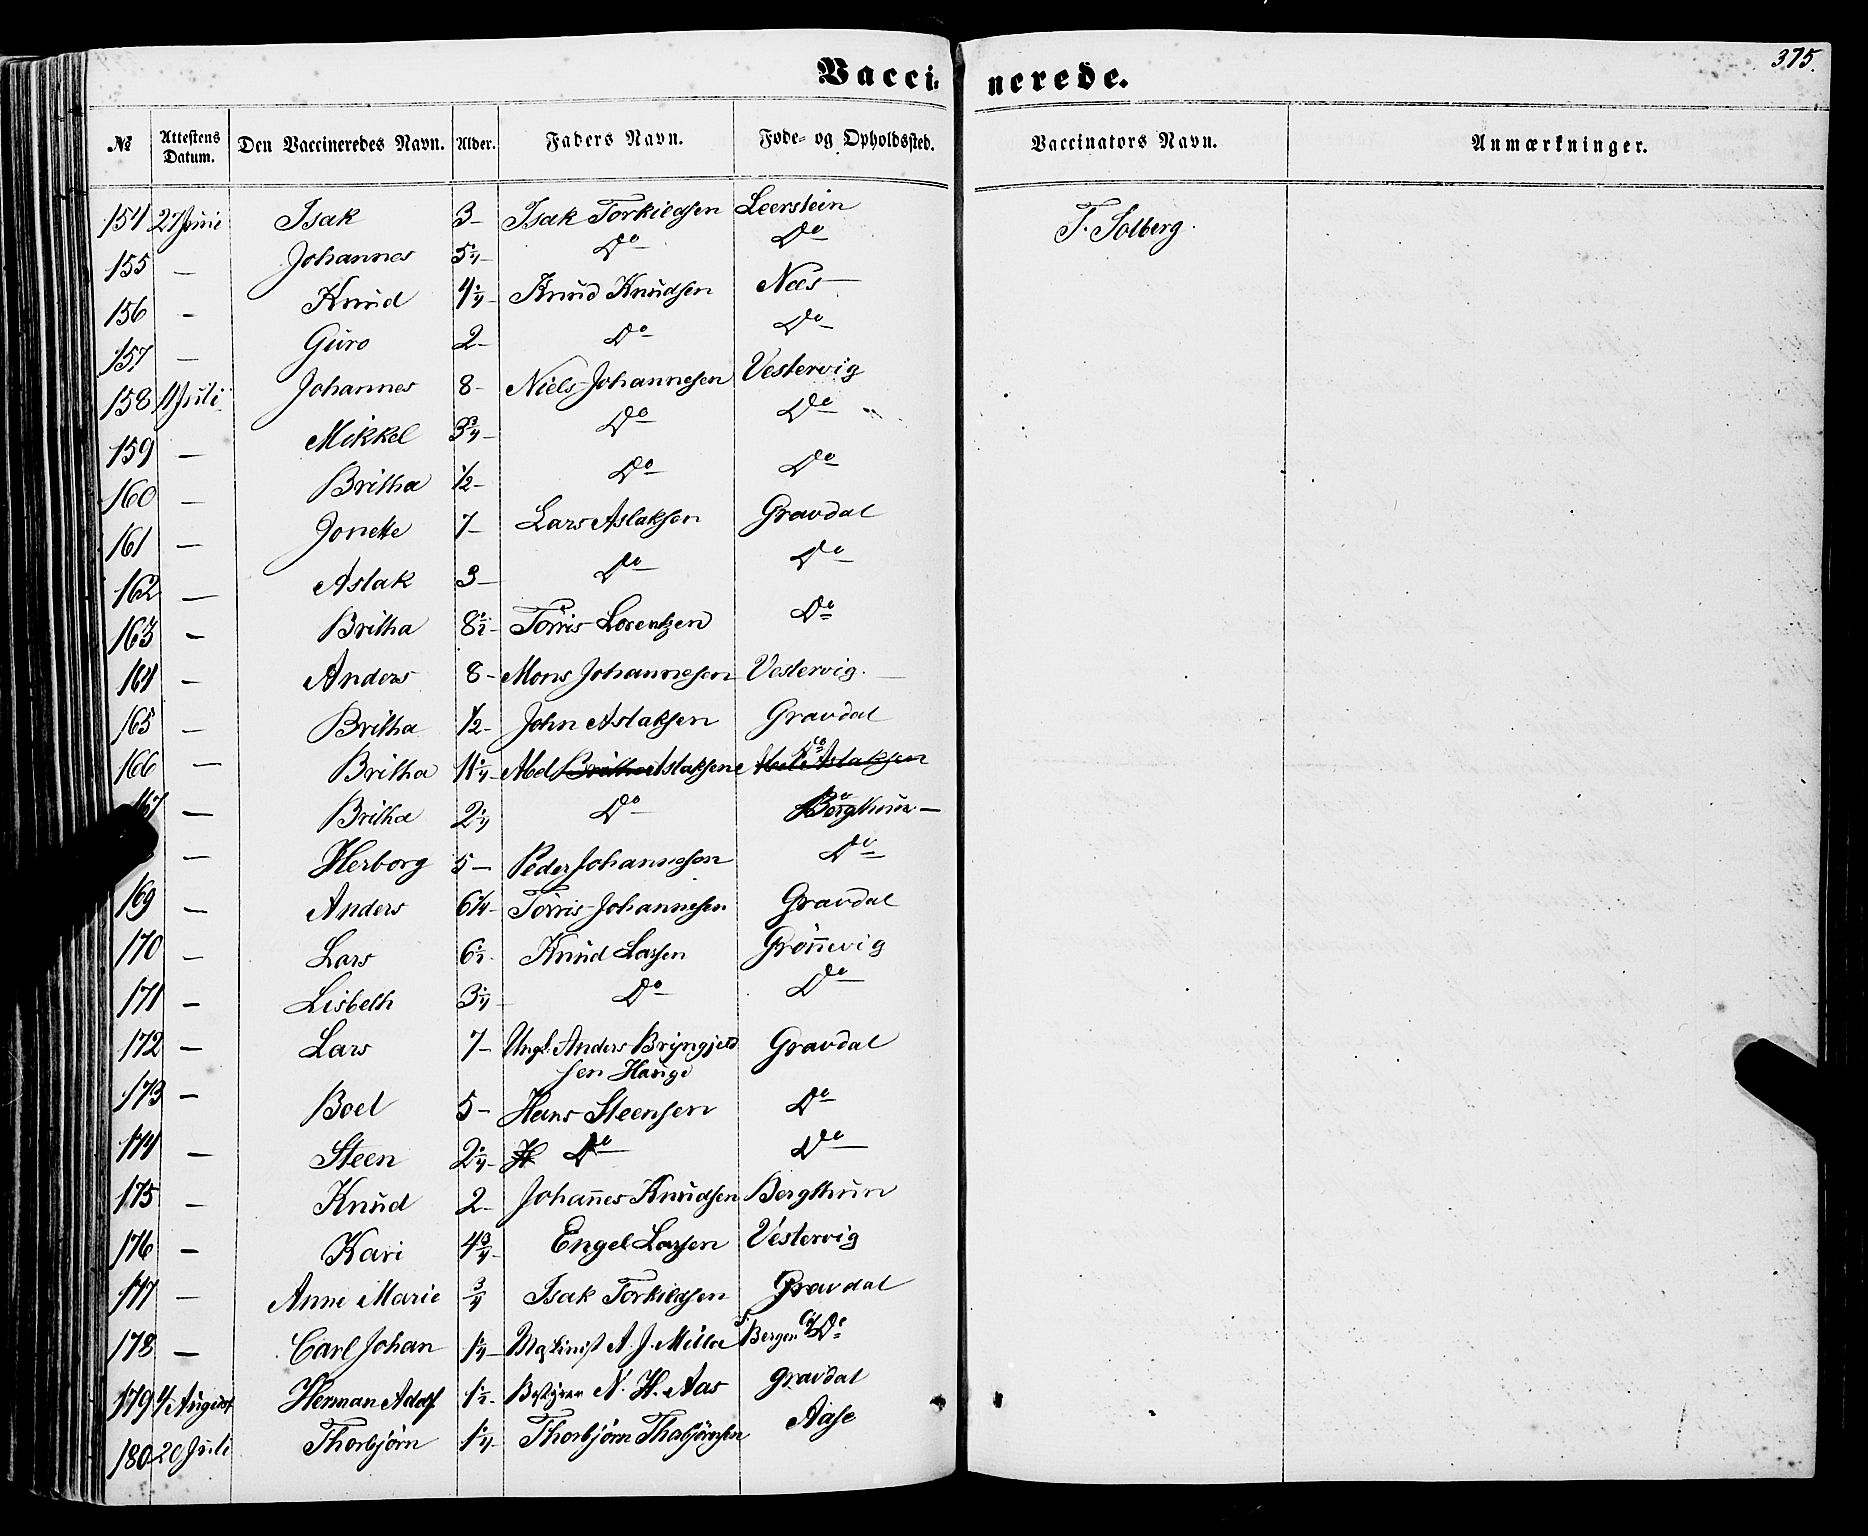 375.
Vaccinerede.
№ Attestens Datum. Den Vaccineredes Navn. Alder. Faders Navn. Føde- og Opholdssted. Vaccinators Navn. Anmærkninger.
154 27 Juni Isak 3 - Isak Torkildsen Leerstein T. Solberg.
155 — Johannes 5 1/4 - Do Do
156 - Knud 4 1/4 - Knud Knudsen Næs —
157 — Guro 2 - Do Do
158 11 Juli Johannes 8 - Niels Johannesen Vestervig
159 — Mikkel 3 3/4 - Do Do
160 — Britha 1/2 - Do Do
161 — Jonette 7 - Lars Aslaksen Gravdal
162 — Aslak 3 — Do Do
163 - Britha 8 1/2 - Törris Lorentzen Do
164 - Anders 8 - Mons Johannesen Vestervig.
165 — Britha 1/2 - John Aslaksen Gravdal
166 — Britha 1/4 - Abel Aslaksen Do
167 — Britha 2 1/4 Do Bergthun —
— Herborg 5 — Peder Johannesen Do
169 — Anders 6 1/4 - Törris Johannesen Gravdal
170 — Lars 6 1/2 - Knud Larsen Grönnevig
171 — Lisbeth 3 1/4 - Do Do
172 — Lars 7 - Ungk. Anders Bryngjeld Gravdal
sen Hauge
173 — Boel 5 - Hans Steensen Do
174 — Steen 2 1/4 - Do Do
175 — Knud 2 - Johannes Knudsen Bergthun
176 - Kari 4 3/4 - Engel Larsen Vestervig
177 — Anne Marie 3/4 Isak Torkildsen Gravdal
178 — Carl Johan 1 1/4 - Maskinist A. J. Bergen Do
179 4 August Herman Adolf 1 1/2 - N. H. Aas Gravdal
180 20 Juli Thorbjörn 1 1/4 - Thorbjörn Thorbjörnsen Aase